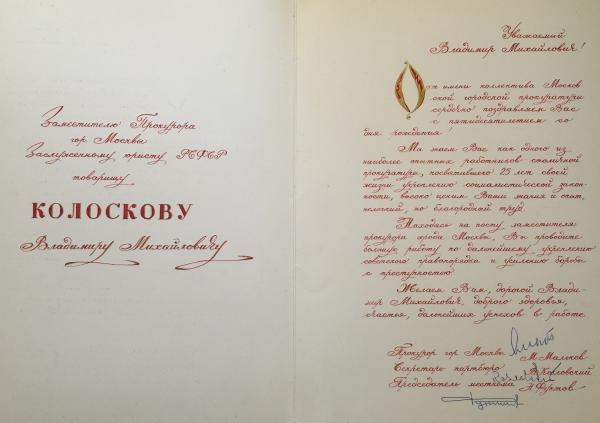 Заместителю Прокурора
гор Москва
Заслуженному юристу РСФСР
товарищу
КОЛОСКОВУ
Владимиру Михайловичу
Уважаемый
Владимир Михайлович!
От имени коллектива Москов
ской городской прокуратуры
сердечно поздравляем Вас
с пятидесятилетием со
дня рождения!
Мы знаем Вас, как одного из
наиболее опытных работников столичной
прокуратуры, посвятившего 25 лет своей
жизни укреплению социалистической закон-
ности, высоко ценим Ваши знания и опыт,
нелегкий, но благородный труд.
Находясь на посту заместителя
прокурора города Москвы, Вы проводите
большую работу по дальнейшему укреплению
советского правопорядка и усилению борьбы
с преступностью.
Желаем Вам, дорогой Влади-
мир Михайлович, доброго здоровья,
счастья, дальнейших успехов в работе.
Прокурор гор Москвы М. Мальков
Секретарь партбюро В. Козловский
Председатель месткома Н. Фуртов